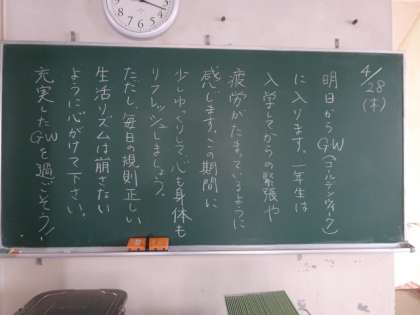 4/28(木)
明日からGW(ゴールデンウィーク)
に入ります。一年生は
入学してからの緊張や
疲労がたまっているように
感じます。この期間に
少しゆっくりして心も身体も
リフレッシュしましょう。
ただし、毎日の規則正しい
生活リズムは崩さない
ように心がけて下さい。
充実したGWを過ごそう!